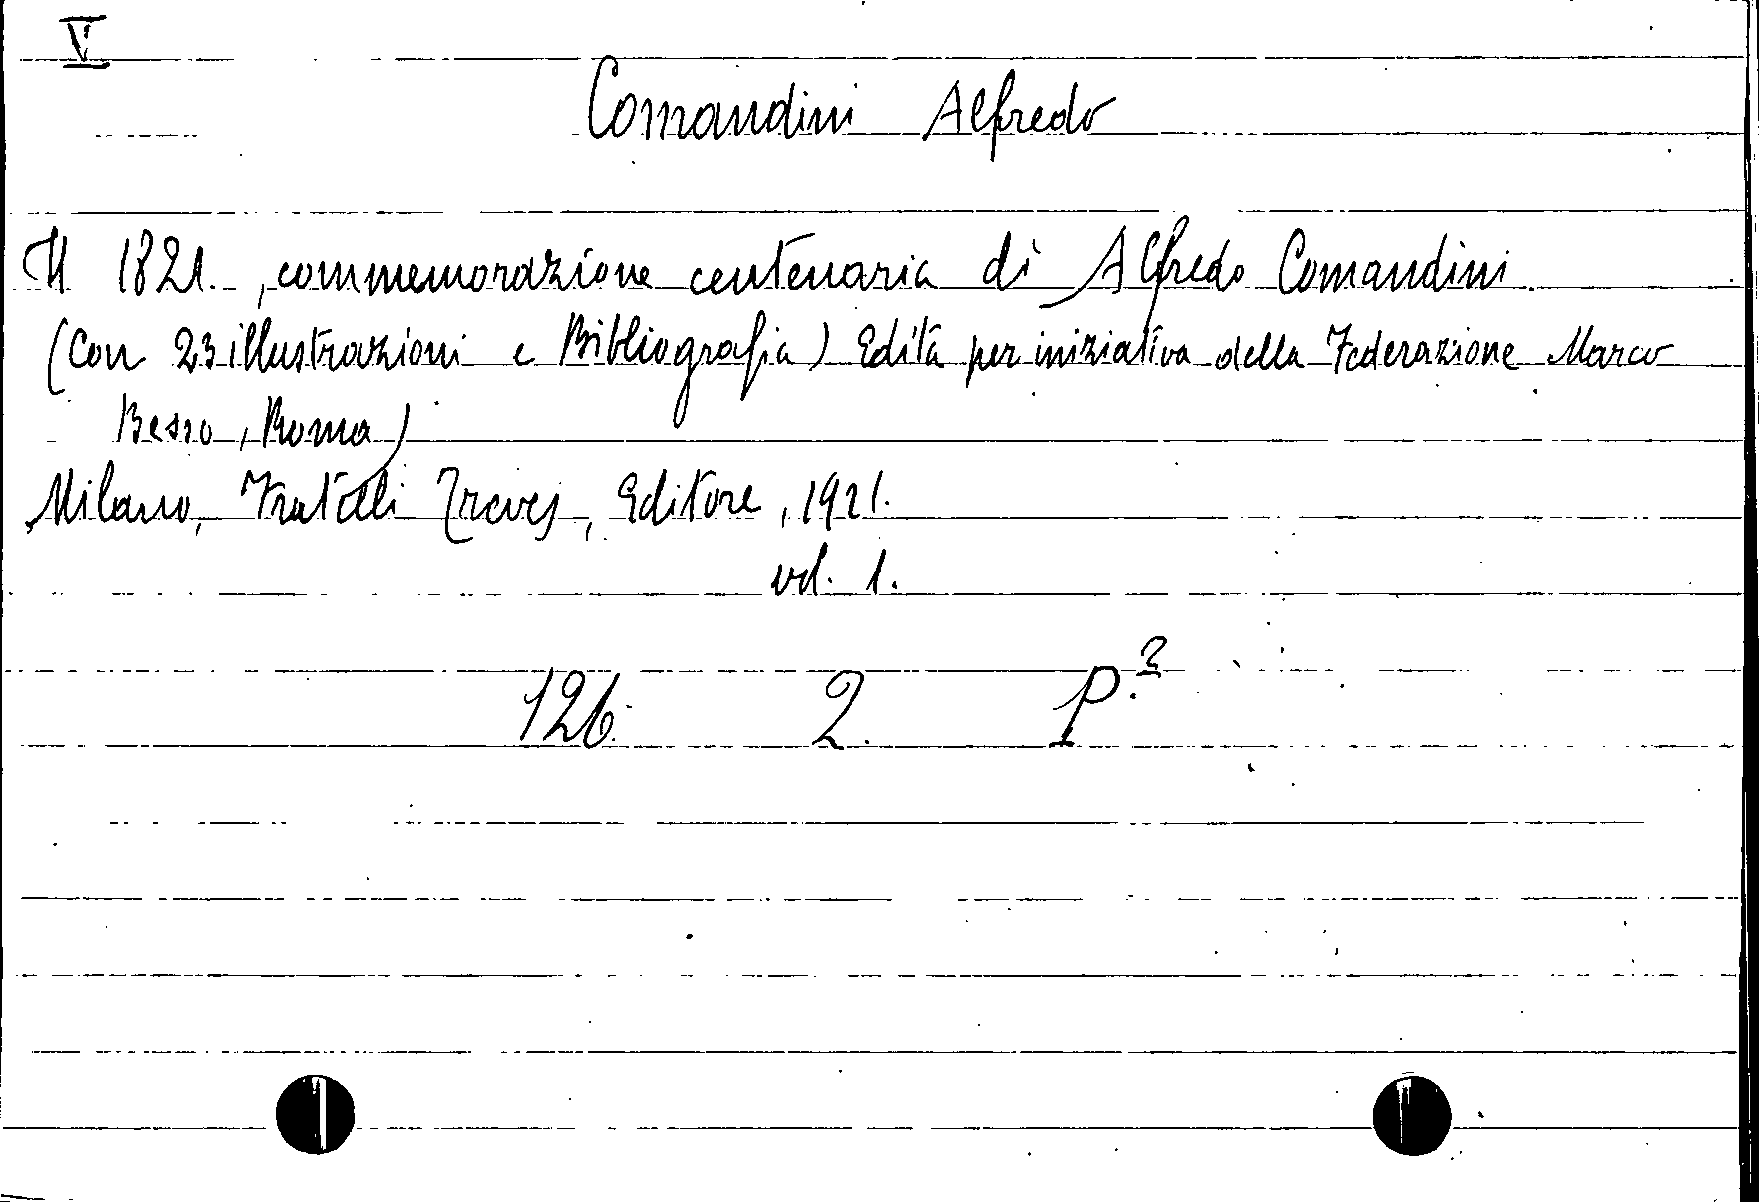 V
Comandini Alfredo
Il 1821., commemorazione centenaria di Alfredo Comandini.
(Con 23 illustrazioni e Bibliografia) Edita per iniziativa della Federazione Marco
Besso, Roma)
Milano, Fratelli Treves, Editore, 1921.
vol. 1.
126. 2. P.2